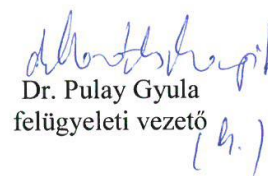 Dr. Pulay Gyula
felügyeleti vezető
(h.)